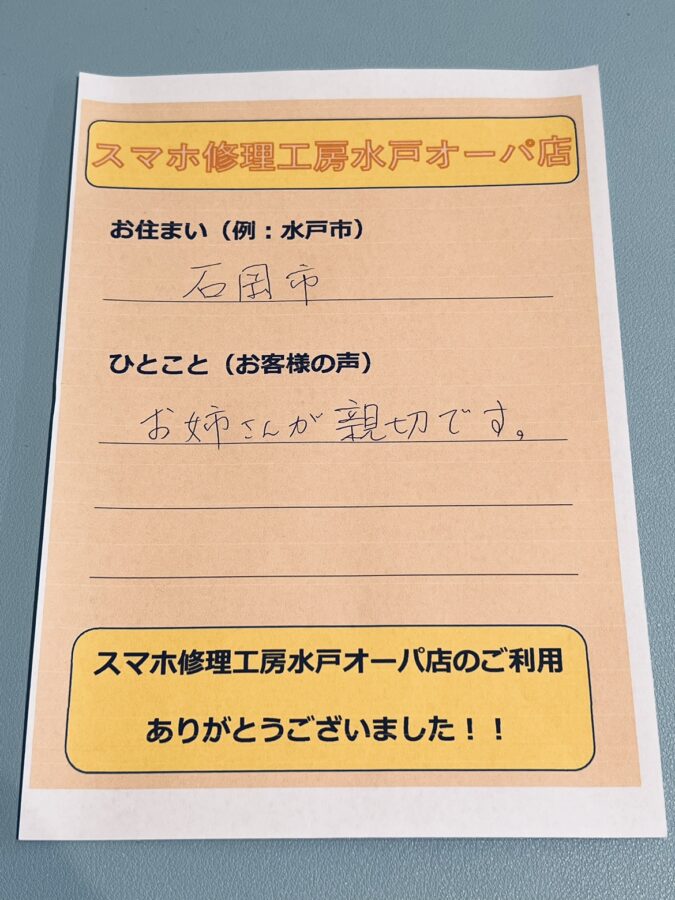 スマホ修理工房水戸オーパ店
お住まい（例：水戸市）
石岡市
ひとこと（お客様の声）
お姉さんが親切です。
スマホ修理工房水戸オーパ店のご利用
ありがとうございました！！